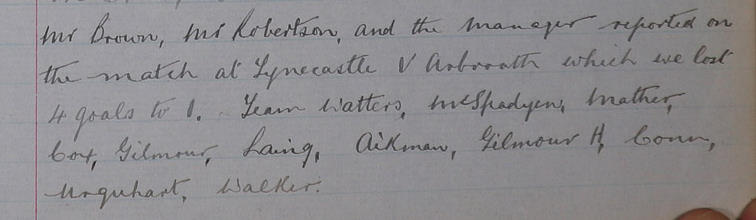 Mr Brown, Mr Robertson, and the manager reported on
the match at Tynecastle V Arbroath which we lost
4 goals to 1. Team Watters, McSpadyen, Mather,
Cox, Gilmour, Laing, Aikman, Gilmour H, Conn,
Urquhart, Walker.